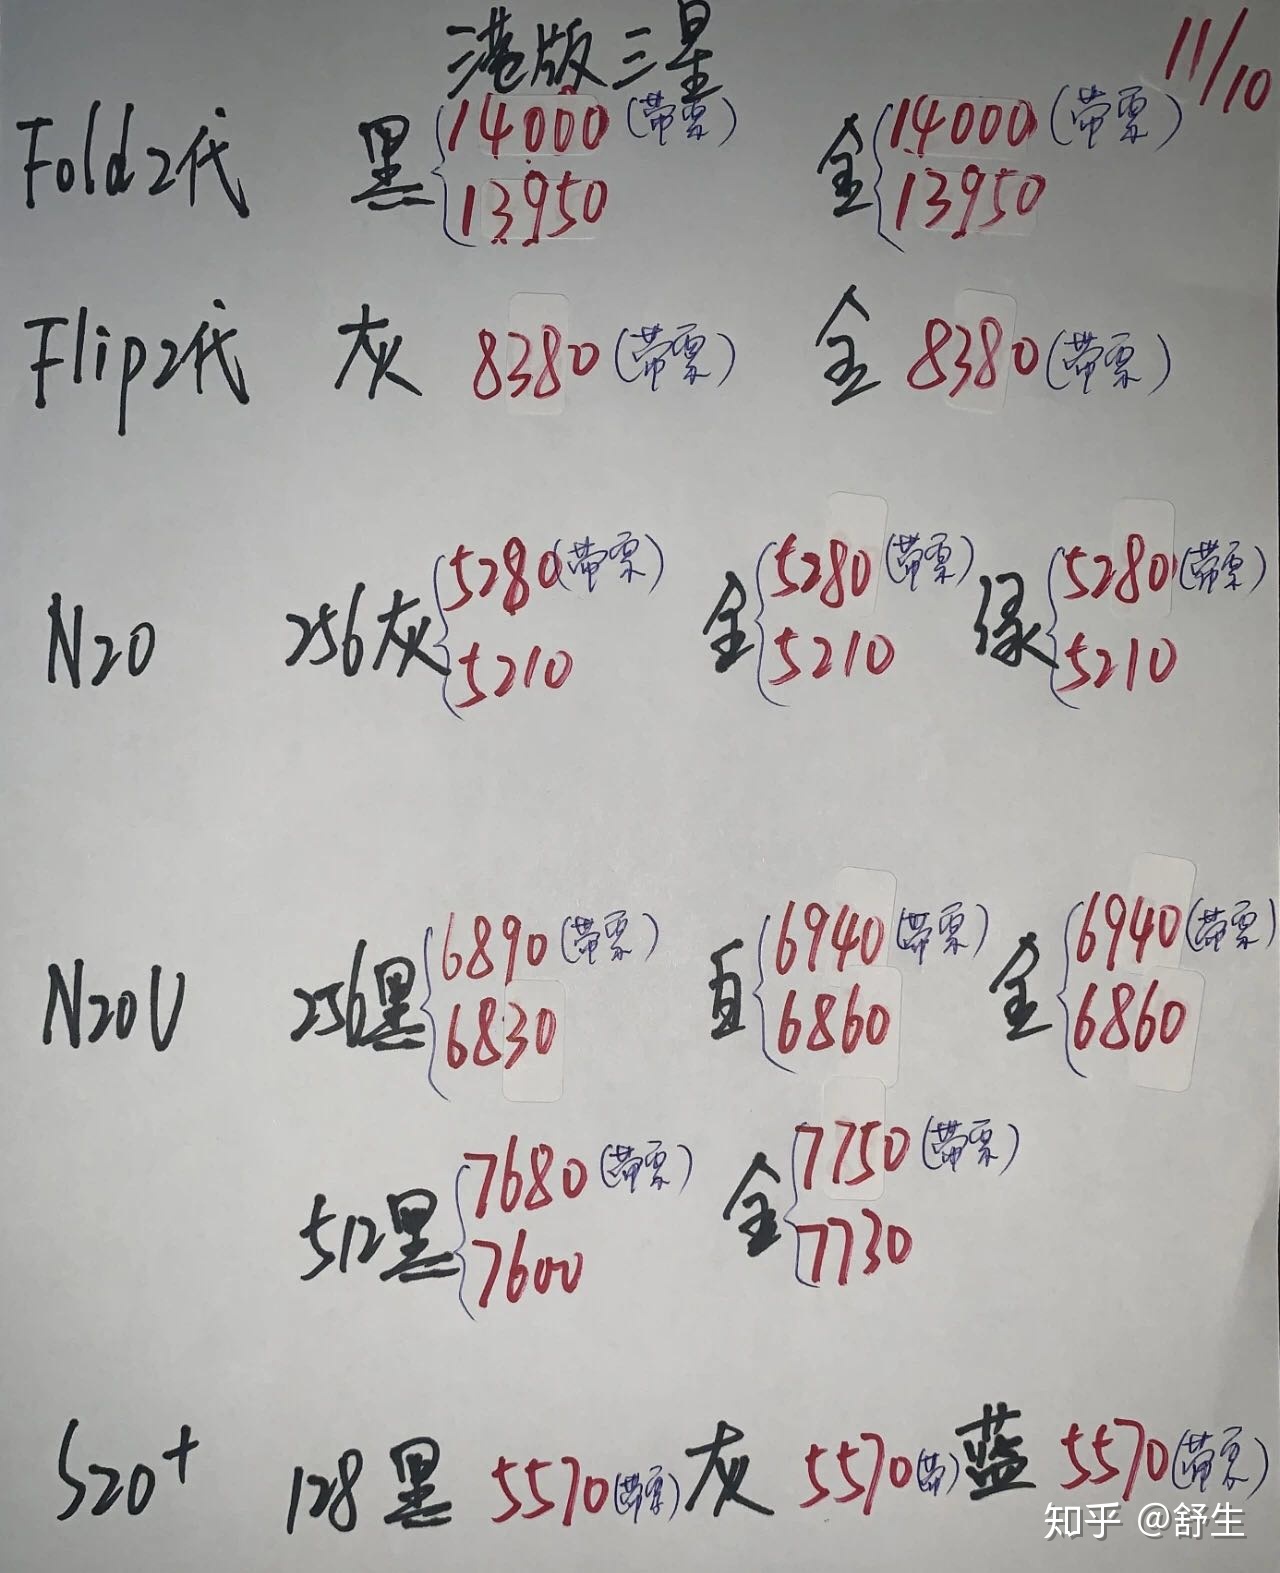 港版三星 11/10
Fold2代 黑 14000(带票) 金 14000(带票)
13950 13950
Flip2代 灰 8380(带票) 金 8380(带票)
N20 256灰 5280(带票) 金 5280(带票) 绿 5280(带票)
5210 5210 5210
N20U 256黑 6890(带票) 白 6940(带票) 金 6940(带票)
6830 6860 6860
512黑 7680(带票) 金 7750(带票)
7600 7730
S20+ 128 黑 5570(带票) 灰 5570(带) 蓝 5570(带票)
知乎 @舒生